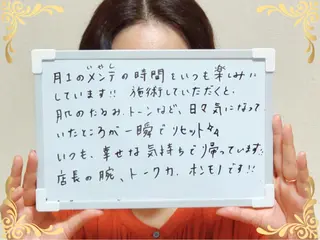 いやし
月1のメンテの時間をいつも楽しみに
しています!! 施術していただくと、
肌のたるみ、トーンなど、日々気になって
いたところが一瞬でリセット
いつも、幸せな気持ちで帰っています。
店長の腕、トーク力、ホンモノです!!